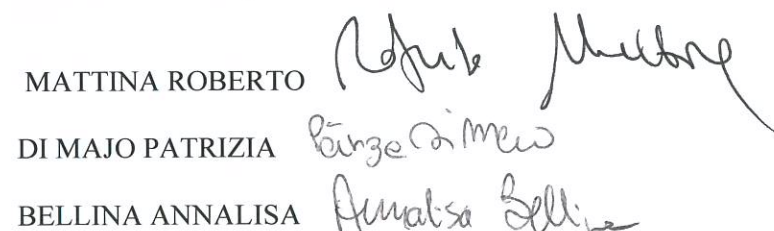 MATTINA ROBERTO Roberto Mattina
DI MAJO PATRIZIA Patrizia Di Majo
BELLINA ANNALISA Annalisa Bellina